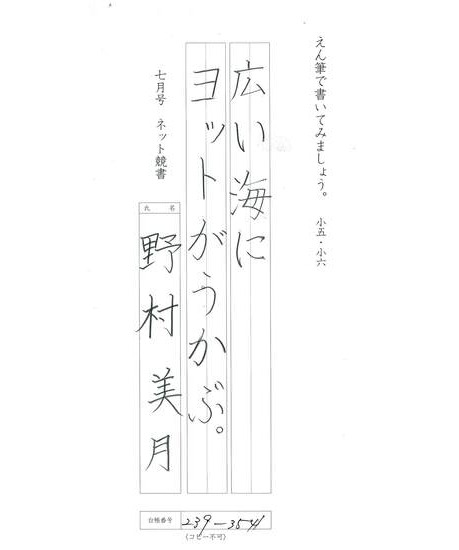 えん筆で書いてみましょう。 小五・小六
広い海に
ヨットがうかぶ。
七月号 ネット競書
氏名
野村美月
台帳番号 239-3541
(コピー不可)